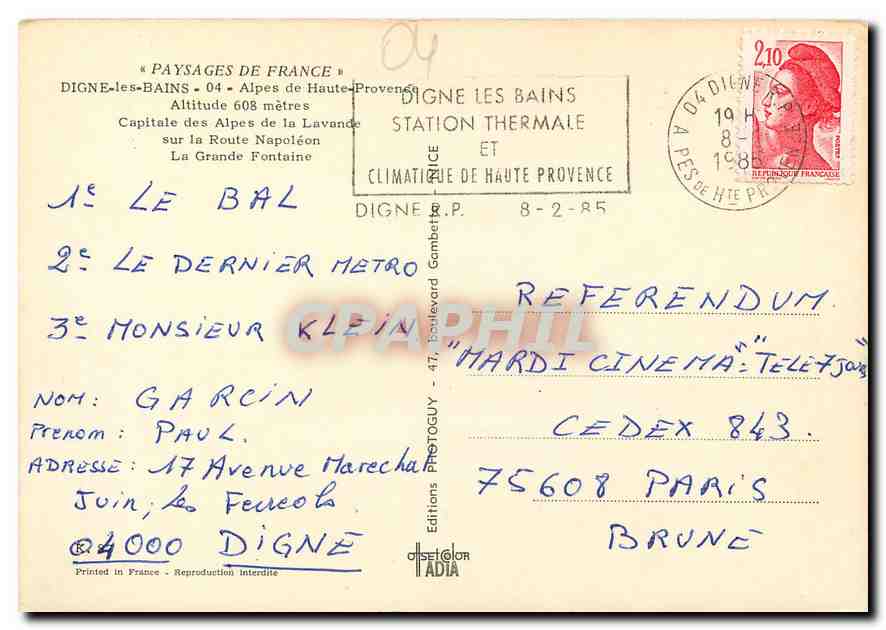 04
« PAYSAGES DE FRANCE »
DIGNE-les-BAINS - 04 - Alpes de Haute-Provence
Altitude 608 mètres
Capitale des Alpes de la Lavande
sur la Route Napoléon
La Grande Fontaine
DIGNE LES BAINS
STATION THERMALE
ET
CLIMATIQUE DE HAUTE PROVENCE
DIGNE R.P. 8-2-85
04 DIGNE R.P.
19 H
8-
1985
A PES DE HTE PROVENCE
2,10
POSTES
REPUBLIQUE FRANCAISE
1e LE BAL
2e LE DERNIER METRO
3e MONSIEUR KLEIN
NOM : GARCIN
Prenom : PAUL.
ADRESSE : 17 Avenue Marechal
Juin, les Ferreols
04000 DIGNE
Printed in France - Reproduction interdite
Editions PHOTOGUY - 47, boulevard Gambetta - NICE
OFFSET COLOR
TADIA
REFERENDUM
"MARDI CINEMA": "TELE 7 Jours"
CEDEX 843.
75608 PARIS
BRUNE
CPAPHIL